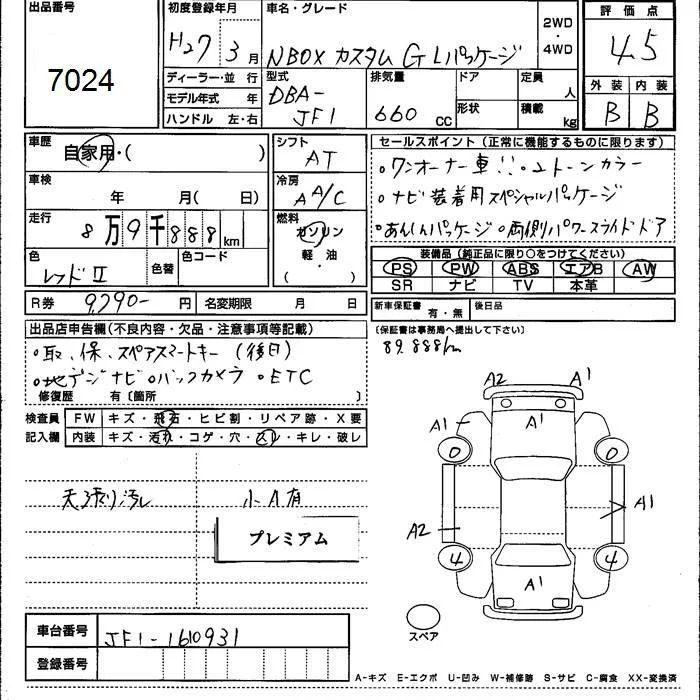 出品番号
7024
初度登録年月
H27 3月
車名・グレード
NBOX カスタム G Lパッケージ
2WD
・
4WD
評価点
4.5
ディーラー・並行
モデル年式 年
ハンドル 左・右
型式
DBA-
JF1
排気量
660 CC
ドア
形状
定員
人
積載
kg
外装 内装
B B
車歴
自家用・( )
シフト
AT
セールスポイント(正常に機能するものに限ります)
。ワンオーナー車!!。2トーンカラー
。ナビ装着用スペシャルパッケージ
。あんしんパッケージ。両側パワースライドドア
車検
年 月( 日)
冷房
AA/C
走行
8万9千888km
燃料
ガソリン
軽・油
( )
色
レッドⅡ
色替
色コード
装備品(純正品に限り○をつけてください)
PS PW ABS エアB AW
SR ナビ TV 本革
R券 9,790- 円
名変期限 月 日
新車保証書 有・無
後日品
(保証書は事務局へ提出して下さい)
89.888km
出品店申告欄(不良内容・欠品・注意事項等記載)
。取、保、スペアスマートキー(後日)
。地デジナビ。バックカメラ。ETC
修復歴 有〔箇所 〕
検査員 FW キズ・飛石・ヒビ割・リペア跡・X要
記入欄 内装 キズ・汚れ・コゲ・穴・スレ・キレ・破レ
天張り汚レ
小A有
プレミアム
A2 A1
A1 A1
0 0
A2 A1
4 4
A1
スペア
車台番号 JF1-1610931
登録番号
A-キズ E-エクボ U-凹み W-補修跡 S-サビ C-腐食 XX-交換済